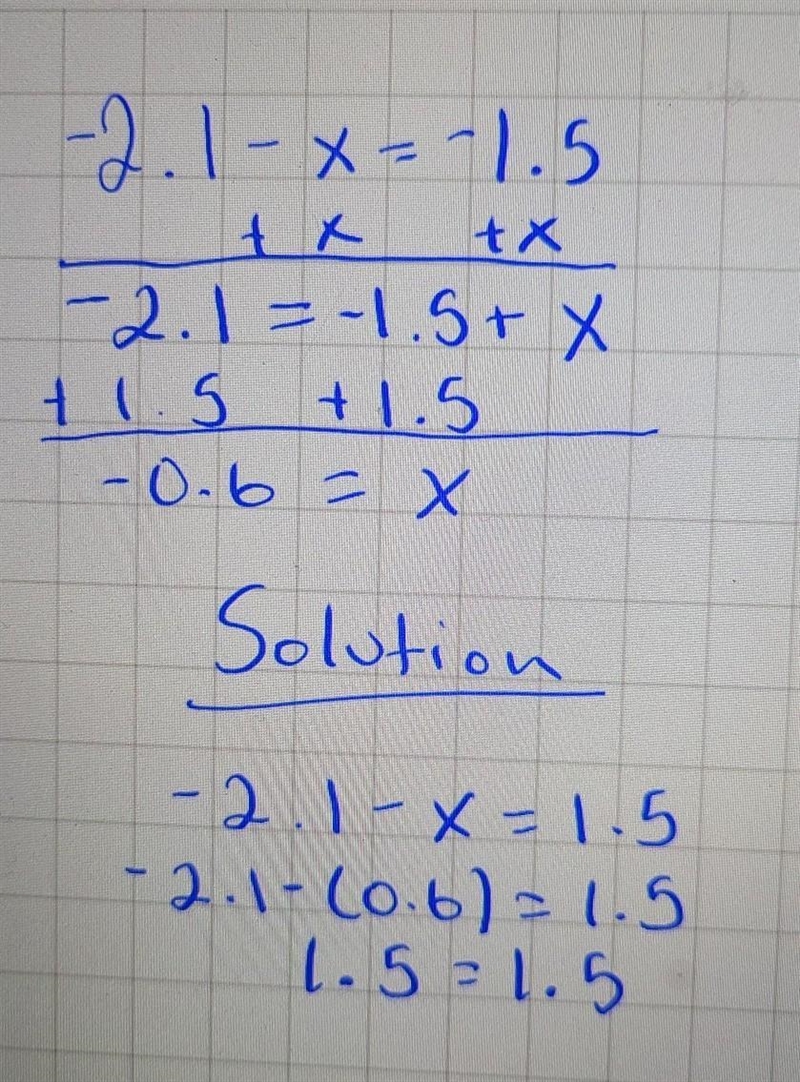 -2.1 - x = -1.5
+ x +x
-2.1 = -1.5 + x
+ 1.5 +1.5
-0.6 = x
Solution
-2.1 - x = 1.5
-2.1 - (0.6) = 1.5
1.5 = 1.5